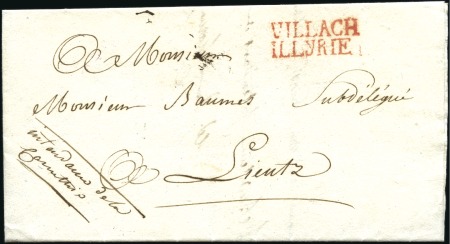 VILLACH
ILLYRIE
A Monsieur
Monsieur Baumes Subdélégué
A Lientz
intendance de la
Carinthie